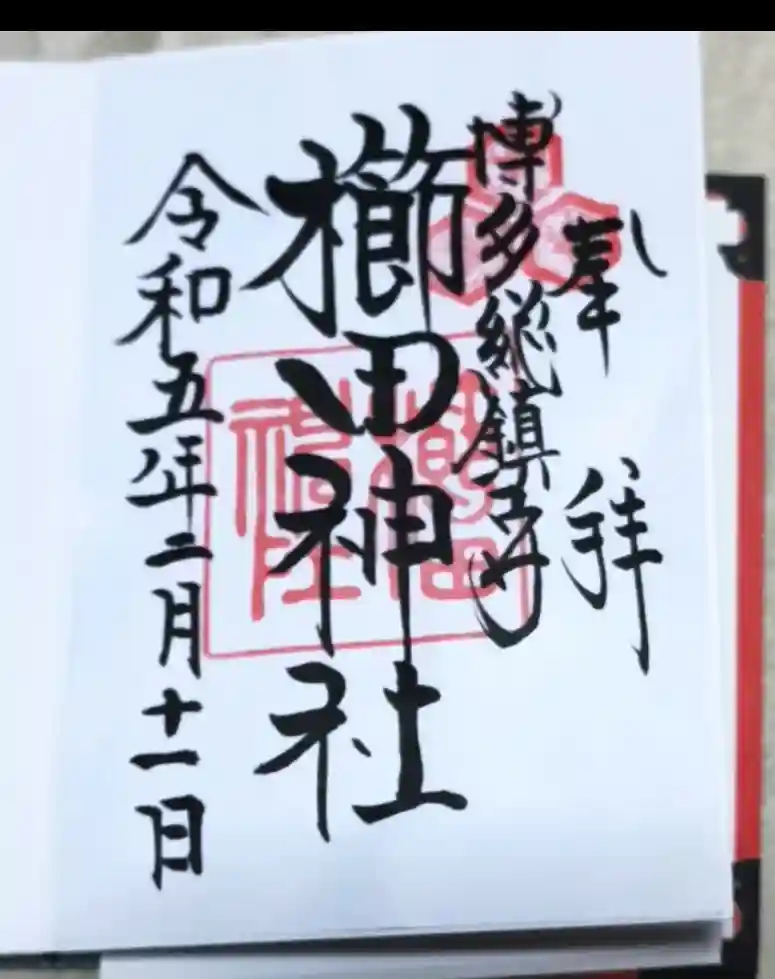 奉拝
博多総鎮守
櫛田神社
令和五年二月十一日